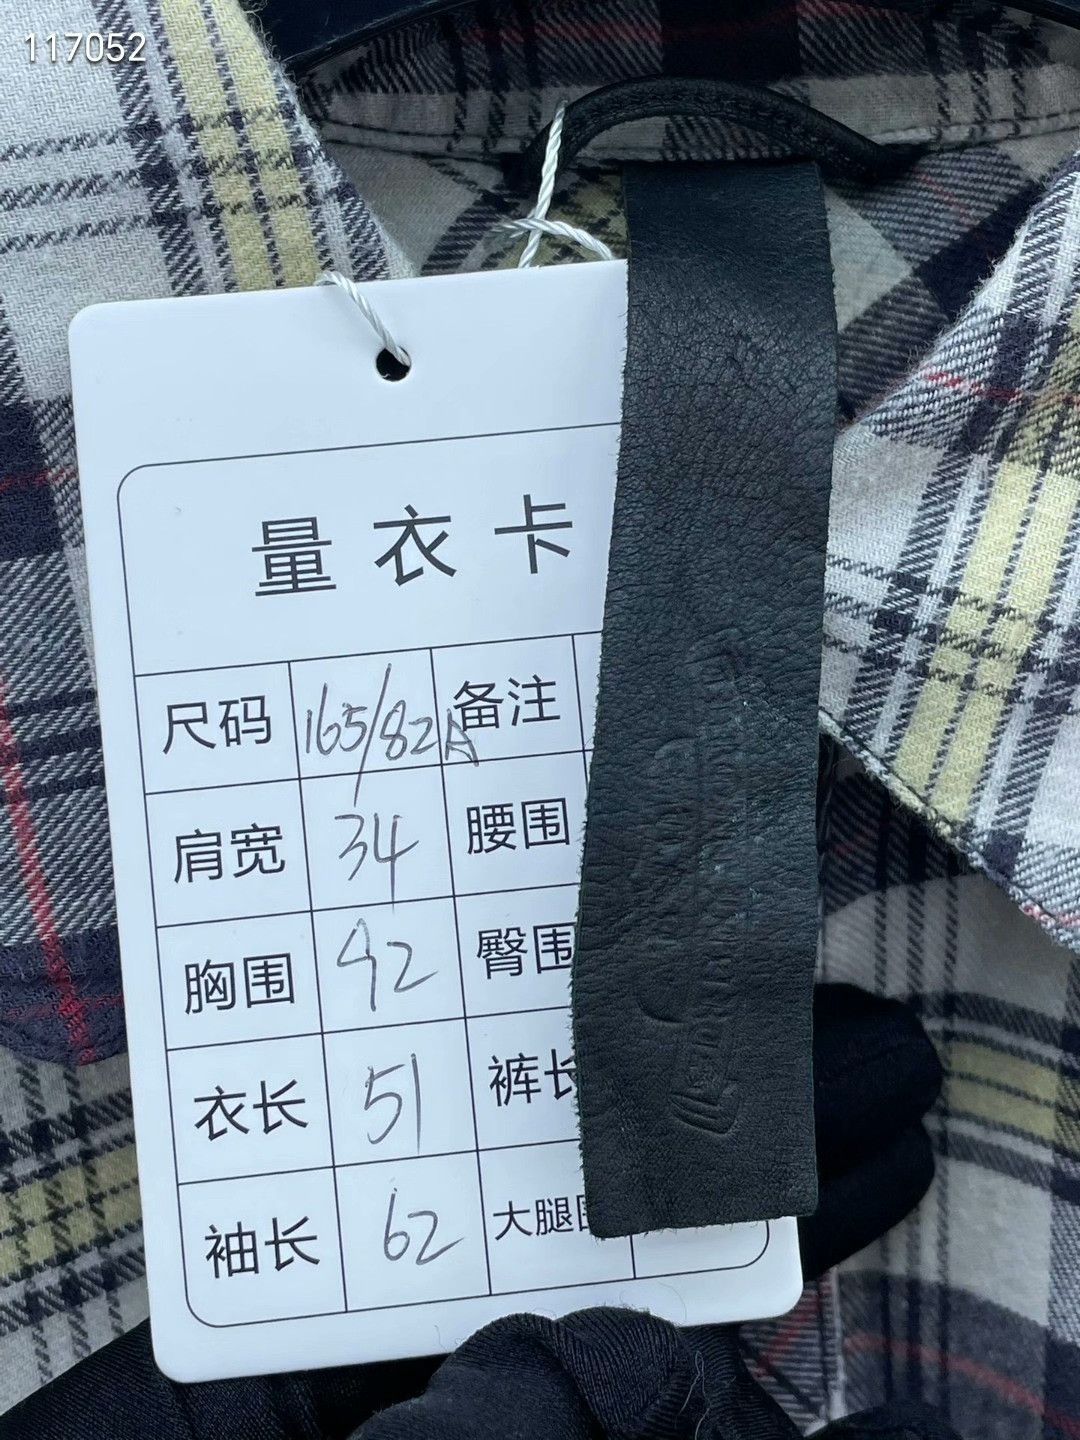 117052
量衣卡
尺码 165/82A 备注
肩宽 34 腰围
胸围 92 臀围
衣长 51 裤长
袖长 62 大腿围